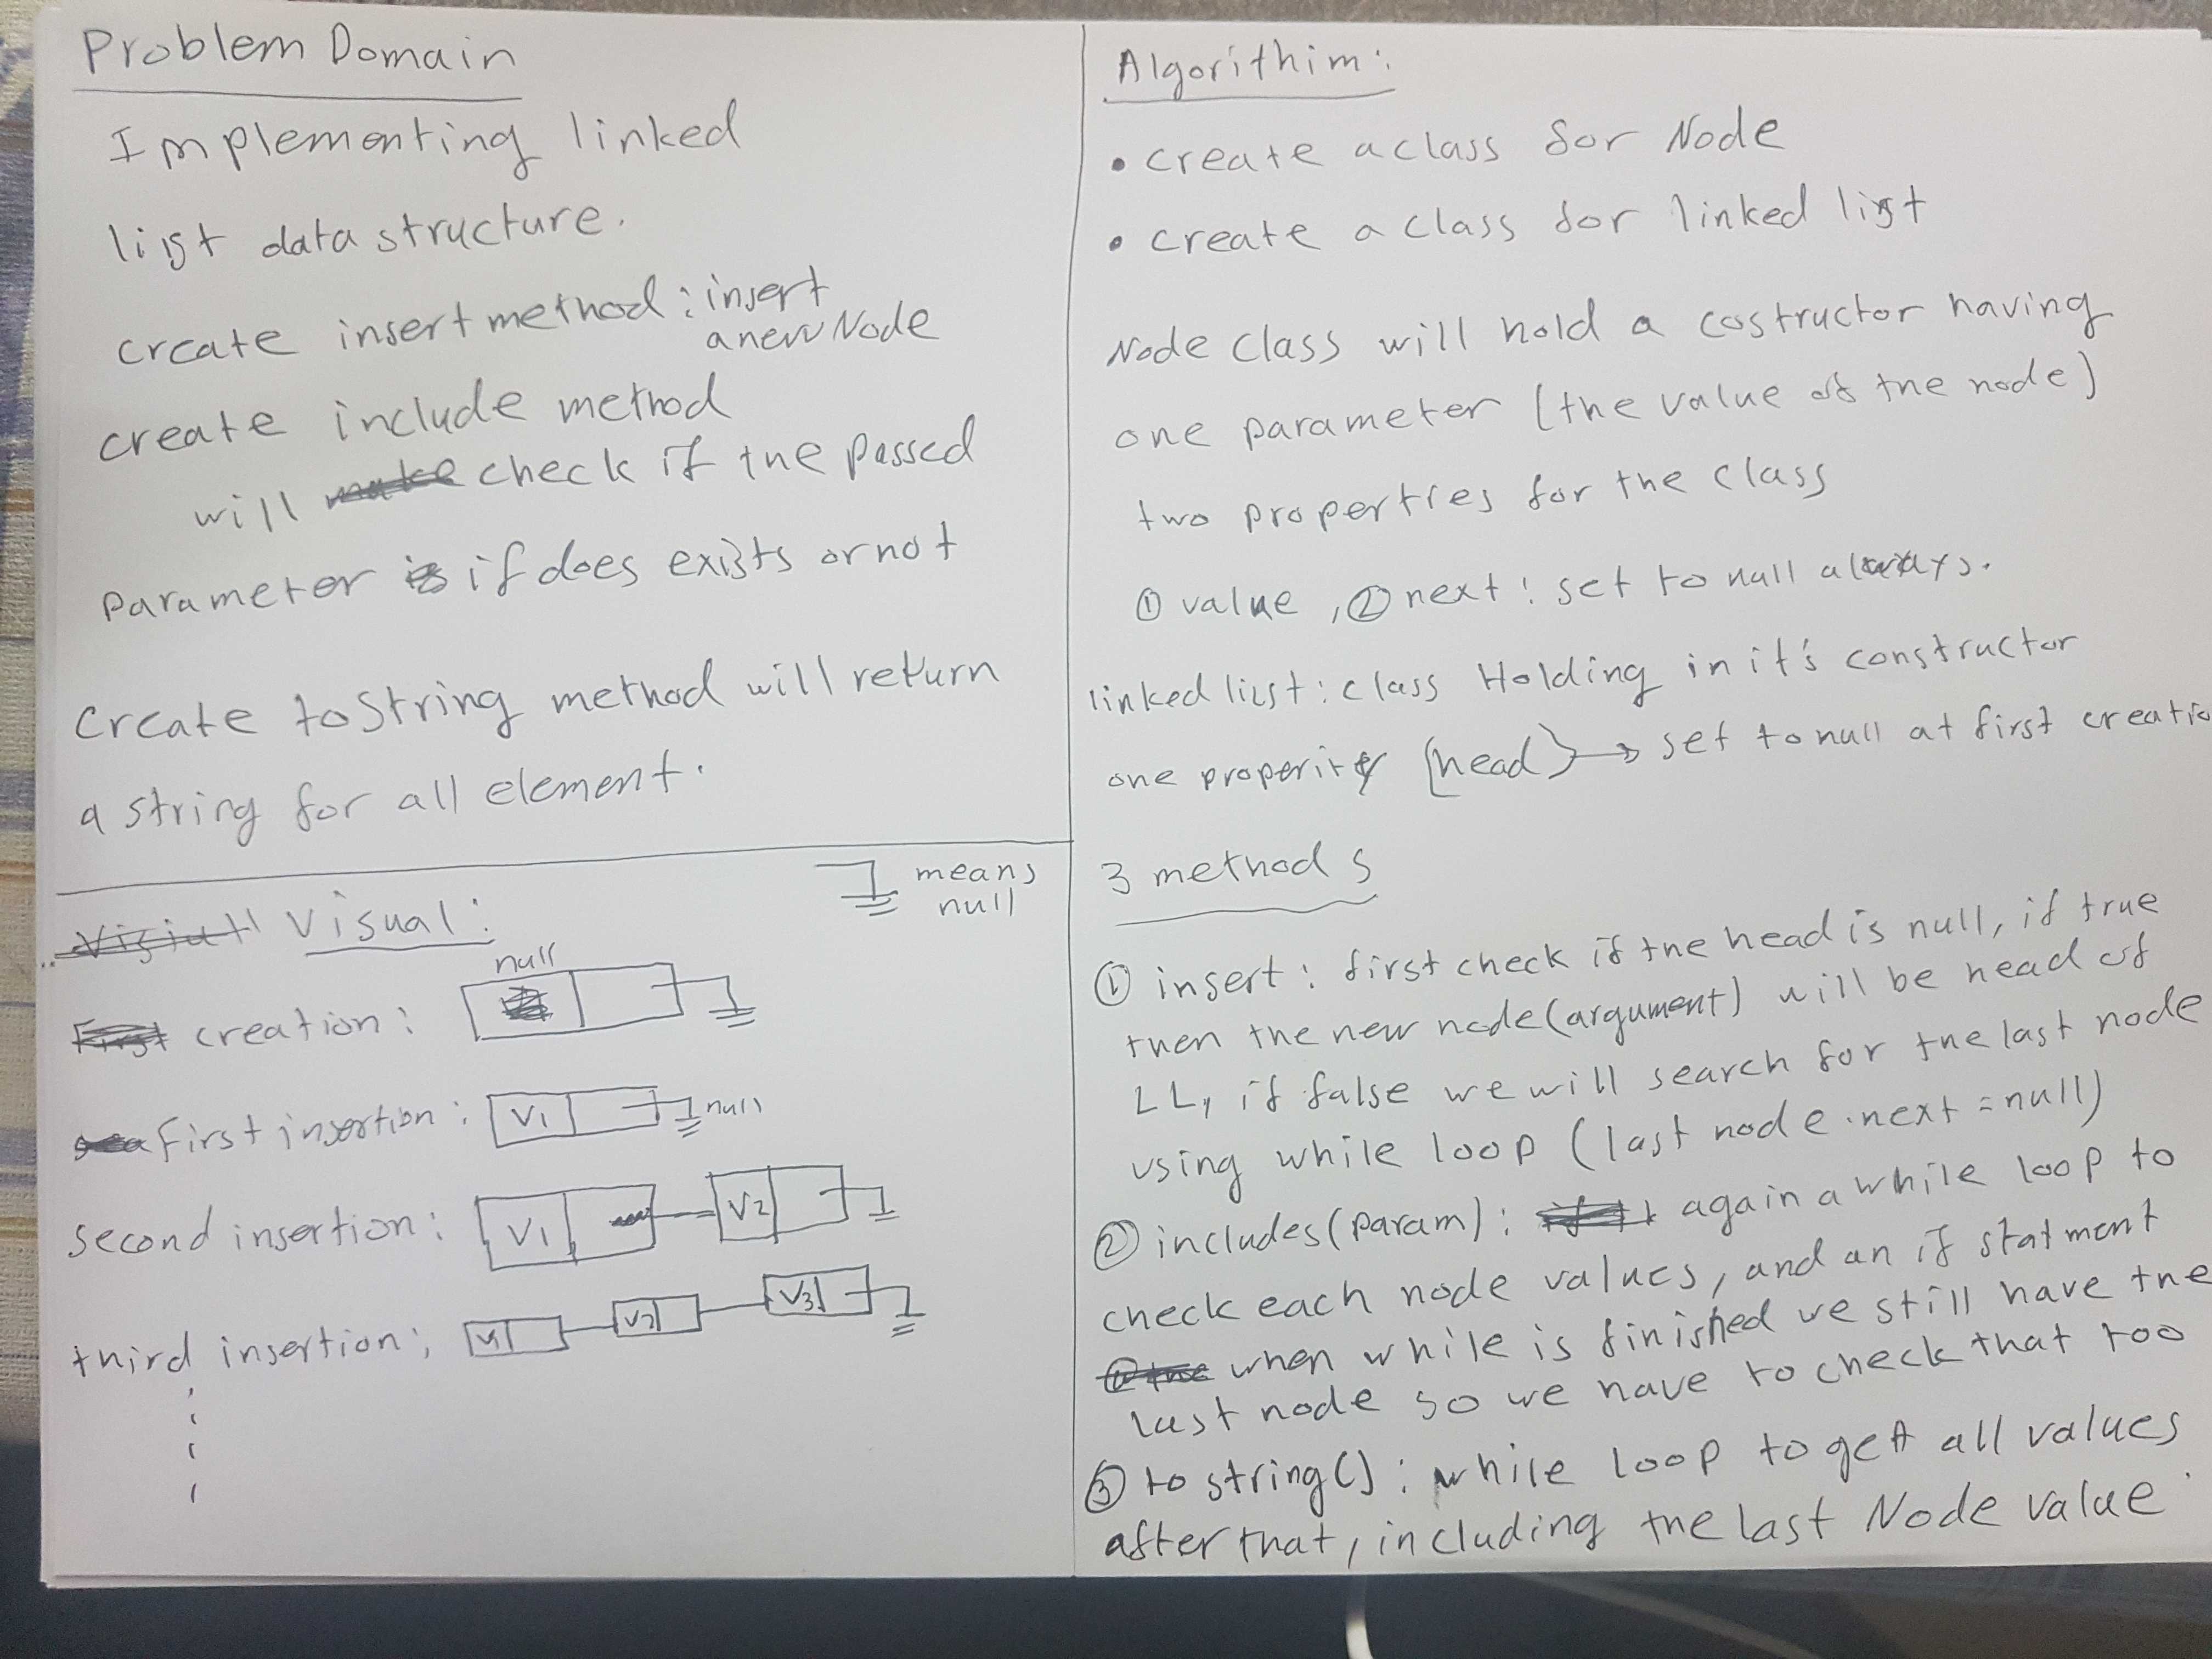 Problem Domain
Implementing linked
list data structure.
create insert method : insert
a new Node
create include method
will make check if the passed
Parameter is if does exists or not
Create toString method will return
a string for all element.
means
null
Visual :
null
First creation :
first insertion : V1 null
second insertion : V1 V2
third insertion : V1 V2 V3
Algorithim :
• create a class for Node
• create a class for linked list
Node class will hold a costructor having
one parameter (the value of the node)
two properties for the class
① value , ② next : set to null always.
linked list : class Holding in it's constructor
one properity {head} → set to null at first creatio
3 methods
① insert : first check if the head is null, if true
then the new node (argument) will be head of
LL, if false we will search for the last node
using while loop (last node .next = null)
② includes (param) : again a while loop to
check each node values, and an if statment
when while is finished we still have the
last node so we have to check that too
③ to string() : while loop to get all values
after that, including the last Node value.